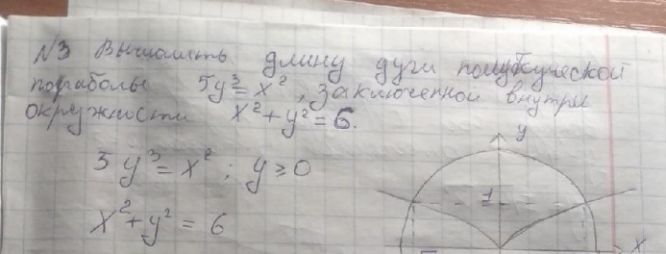 №3 Вычислить длину дуги полукубической
параболы 5y³=x², заключенной внутри
окружности x²+y²=6.
5y³=x²; y≥0
x²+y²=6
y
1
x